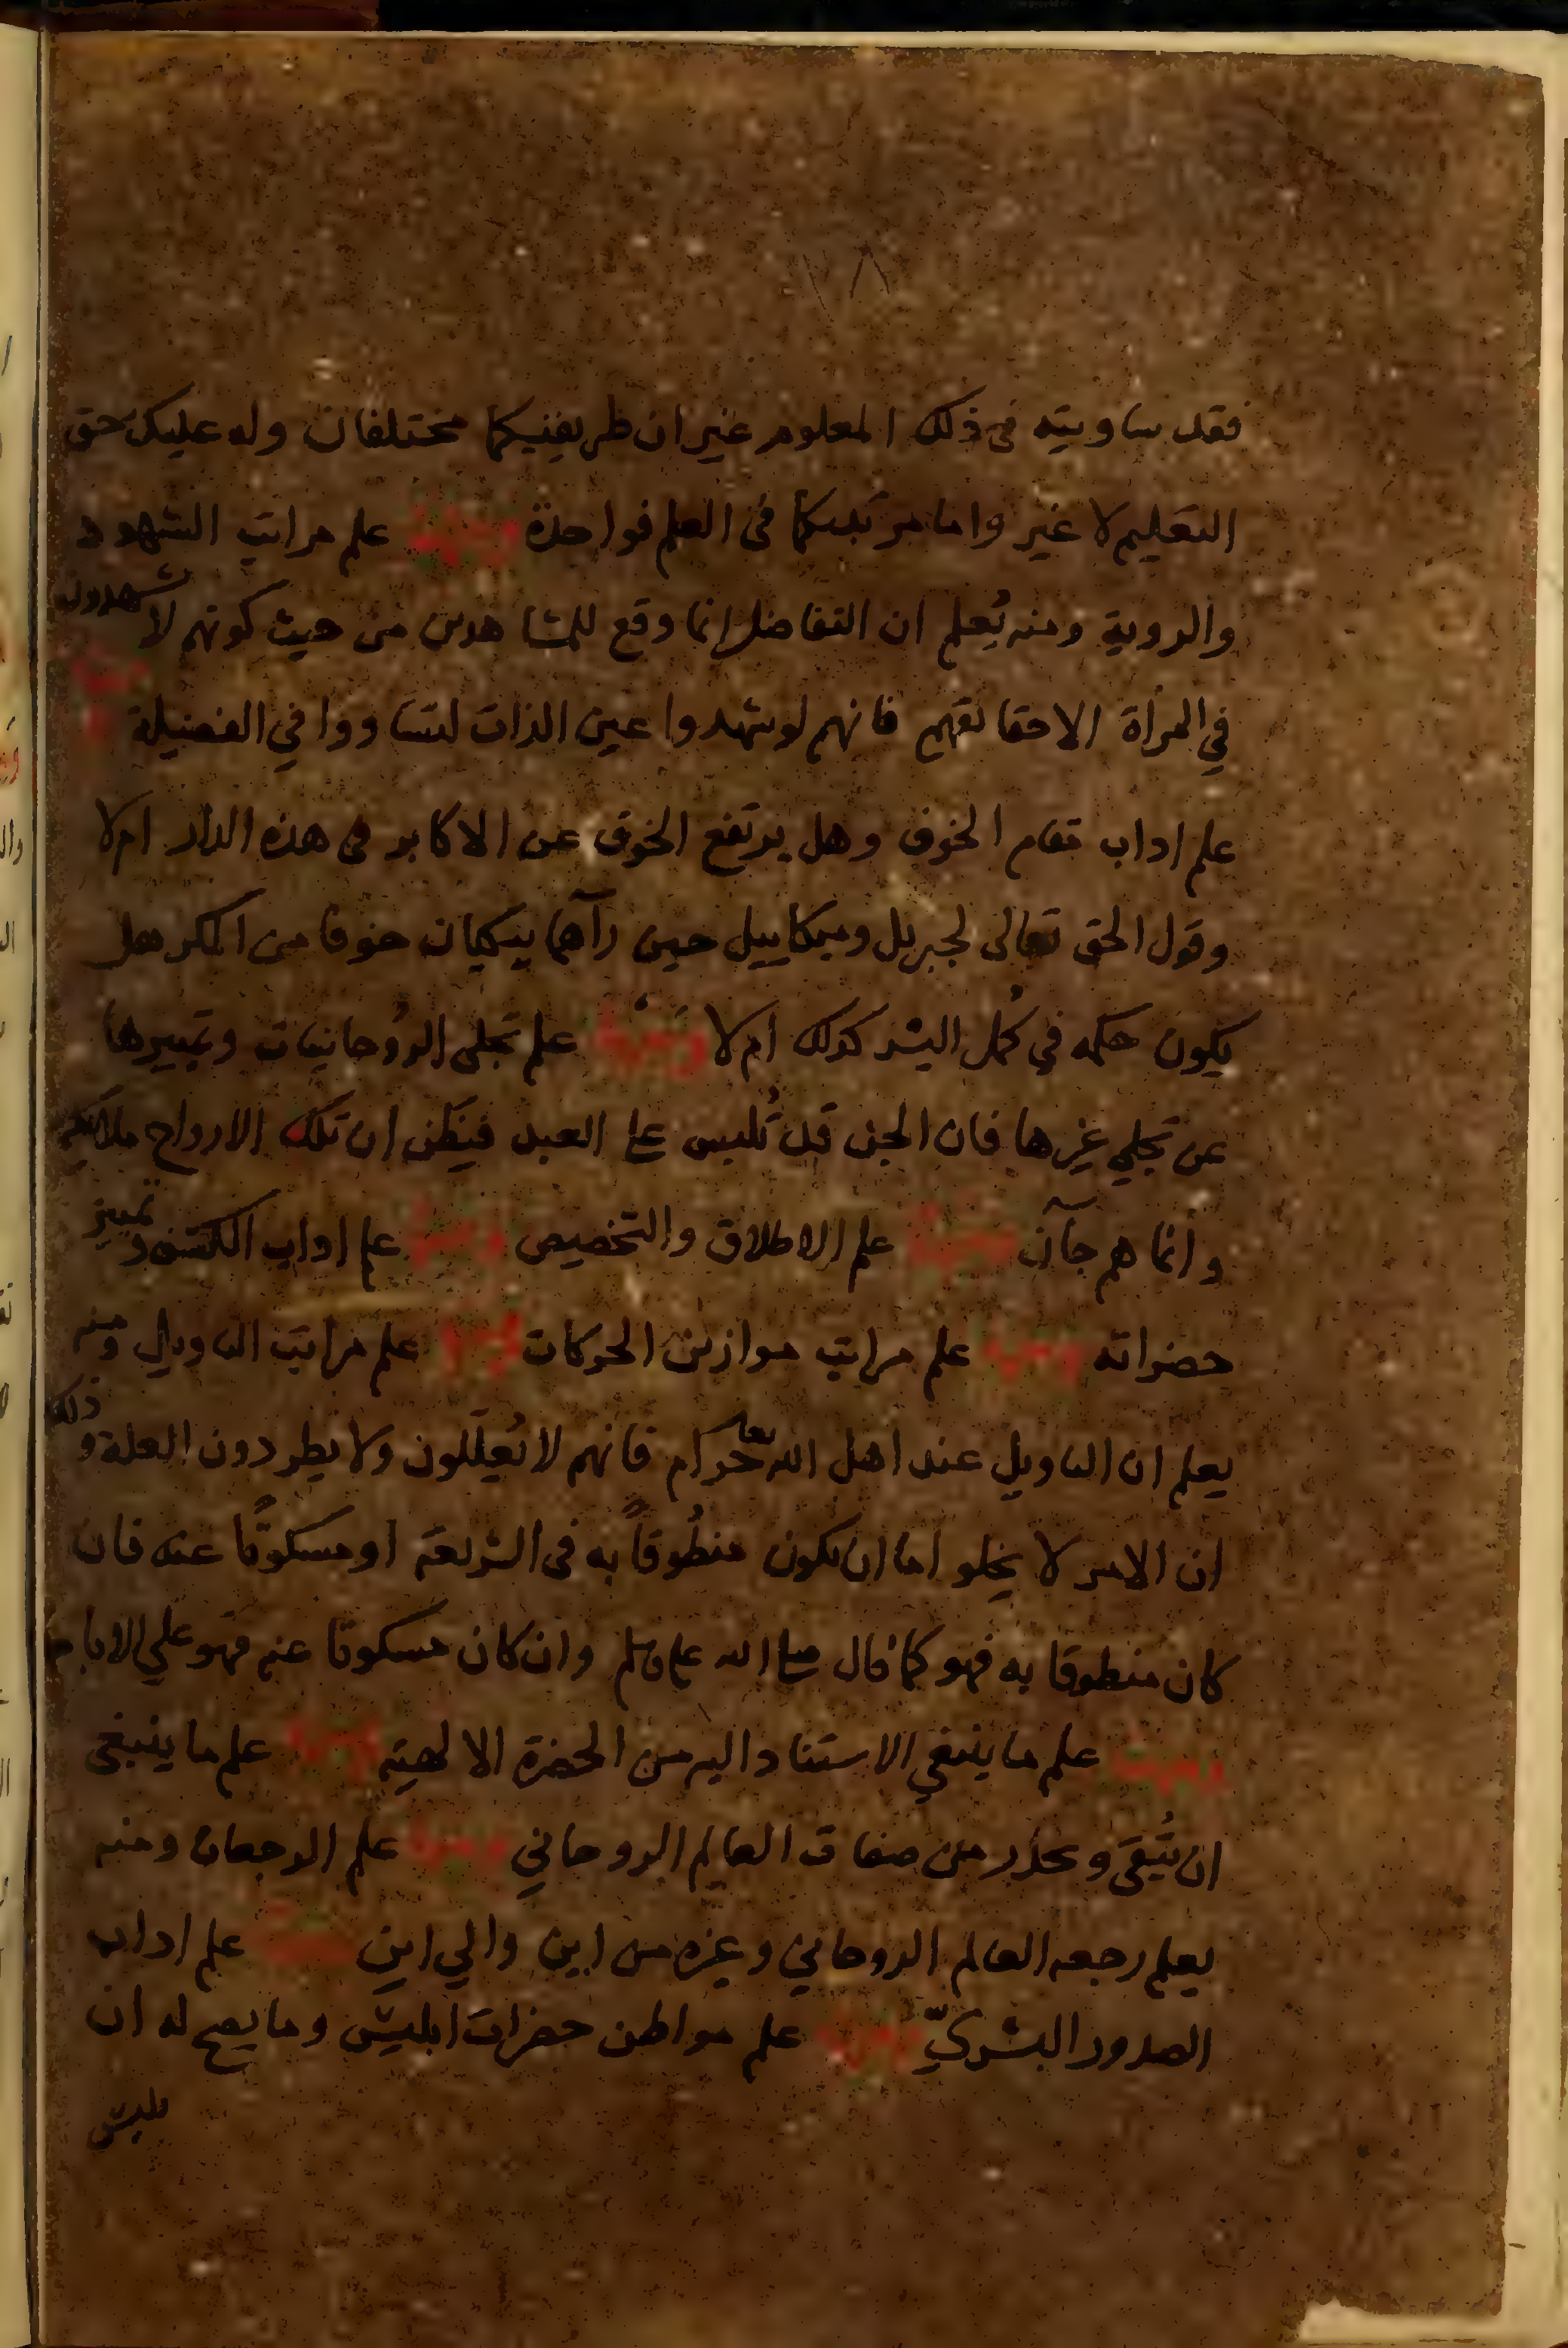 ١٨
فقد ساويته في ذلك المعلوم غير ان طريقيكما مختلفان وله عليك حق
التعليم لا غير واما مرتبتكما في العلم فواحدة ومنها علم مراتب الشهود
والروية ومنه يُعلم ان التفاضل انما وقع للمشاهدين من حيث كونهم لا يشهدون
في المرأة الا حقائقهم فانهم لو شهدوا عين الذات لتساووا في الفضيلة ومنها
علم اداب مقام الخوف وهل يرتفع الخوف عن الاكابر في هذه الدار ام لا
وقول الحق تعالى لجبريل وميكاييل حين رآهما يبكيان خوفا من المكر هل
يكون حكمه في كُمل البشر كذلك ام لا ومنها علم تجلى الروحانيات وتمييرها
عن تجلي غيرها فان الجن قد تُلبس على العبد فيَظن ان تلك الارواح ملائكه
وانما هم جآن ومنها علم الاطلاق والتخصيص ومنها علم اداب الكشف وتمييز
حضراته ومنها علم مراتب موازين الحركات ومنها علم مراتب التاويل ومنه
يعلم ان التاويل عند اهل الله تعالى حرام فانهم لا يُعلّلون ولا يطردون العلة وذلك
ان الامر لا يخلو اما ان يكون منطُوقاً به في الشريعة او مسكوتًا عنه فان
كان منطوقا به فهو كما قال صلى الله عليه وسلم وان كان مسكوتا عنه فهو علي الاباحه
ومنها علم ما ينبغي الاستناد اليه من الحضرة الالهية ومنها علم ما ينبغي
ان يُتَّقى ويحذر من صفات العالم الروحاني ومنها علم الرجعات ومنه
يعلم رجعه العالم الروحاني وغيره من اين والي اين ومنها علم اداب
الصدور البشريّ ومنها علم مواطن حضرات ابليس وما يصح له ان
يلبس